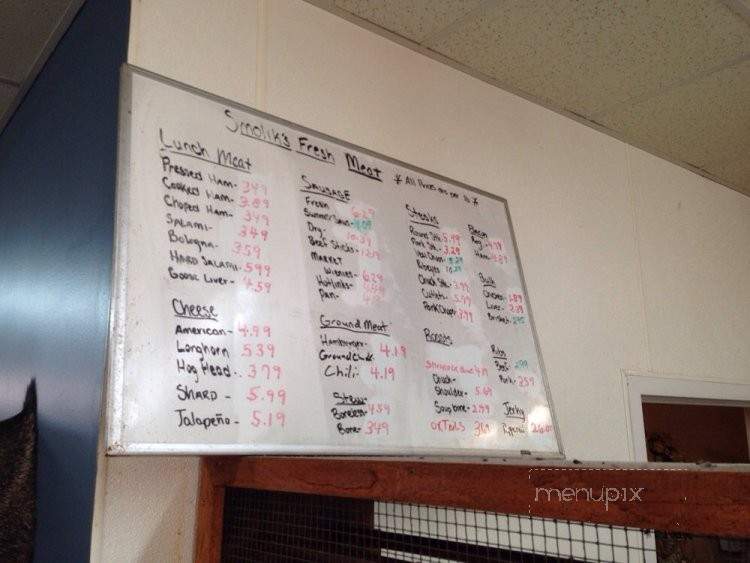 Smolik's Fresh Meat
* All Prices are per lb. *
Lunch Meat
Pressed Ham - 349
Cooked Ham - 3.89
Choped Ham - 349
Salami - 349
Bologna - 359
Hard Salami - 599
Goose Liver - 4.59
Cheese
American - 4.99
Longhorn 539
Hog Head - 379
Sharp - 5.99
Jalapeño - 5.19
Sausage
Fresh 6.29
Summer Saus.
Dry.
Beef Sticks - 12.19
Market
Wienies - 6.29
Hotlinks -
Pan -
Ground Meat
Hamburger
Ground Chuk. 4.19
Chili - 4.19
Stew
Boneless 459
Bone - 349
Steaks
Round Stk. 5.99
Pork Stk. 3.29
Ribeyes
Chuck Stk. 3.99
Cutlets 5.99
Pork Chops 399
Roasts
Chuck -
Shoulder - 5.69
Soup bone - 299
OxTails 369
Bacon
Reg. - 4.79
Ham
Bulk
Chicken 1.89
Liver - 2.39
Brisket
Ribs
Beef 299
Pork - 359
Jerky
menupix